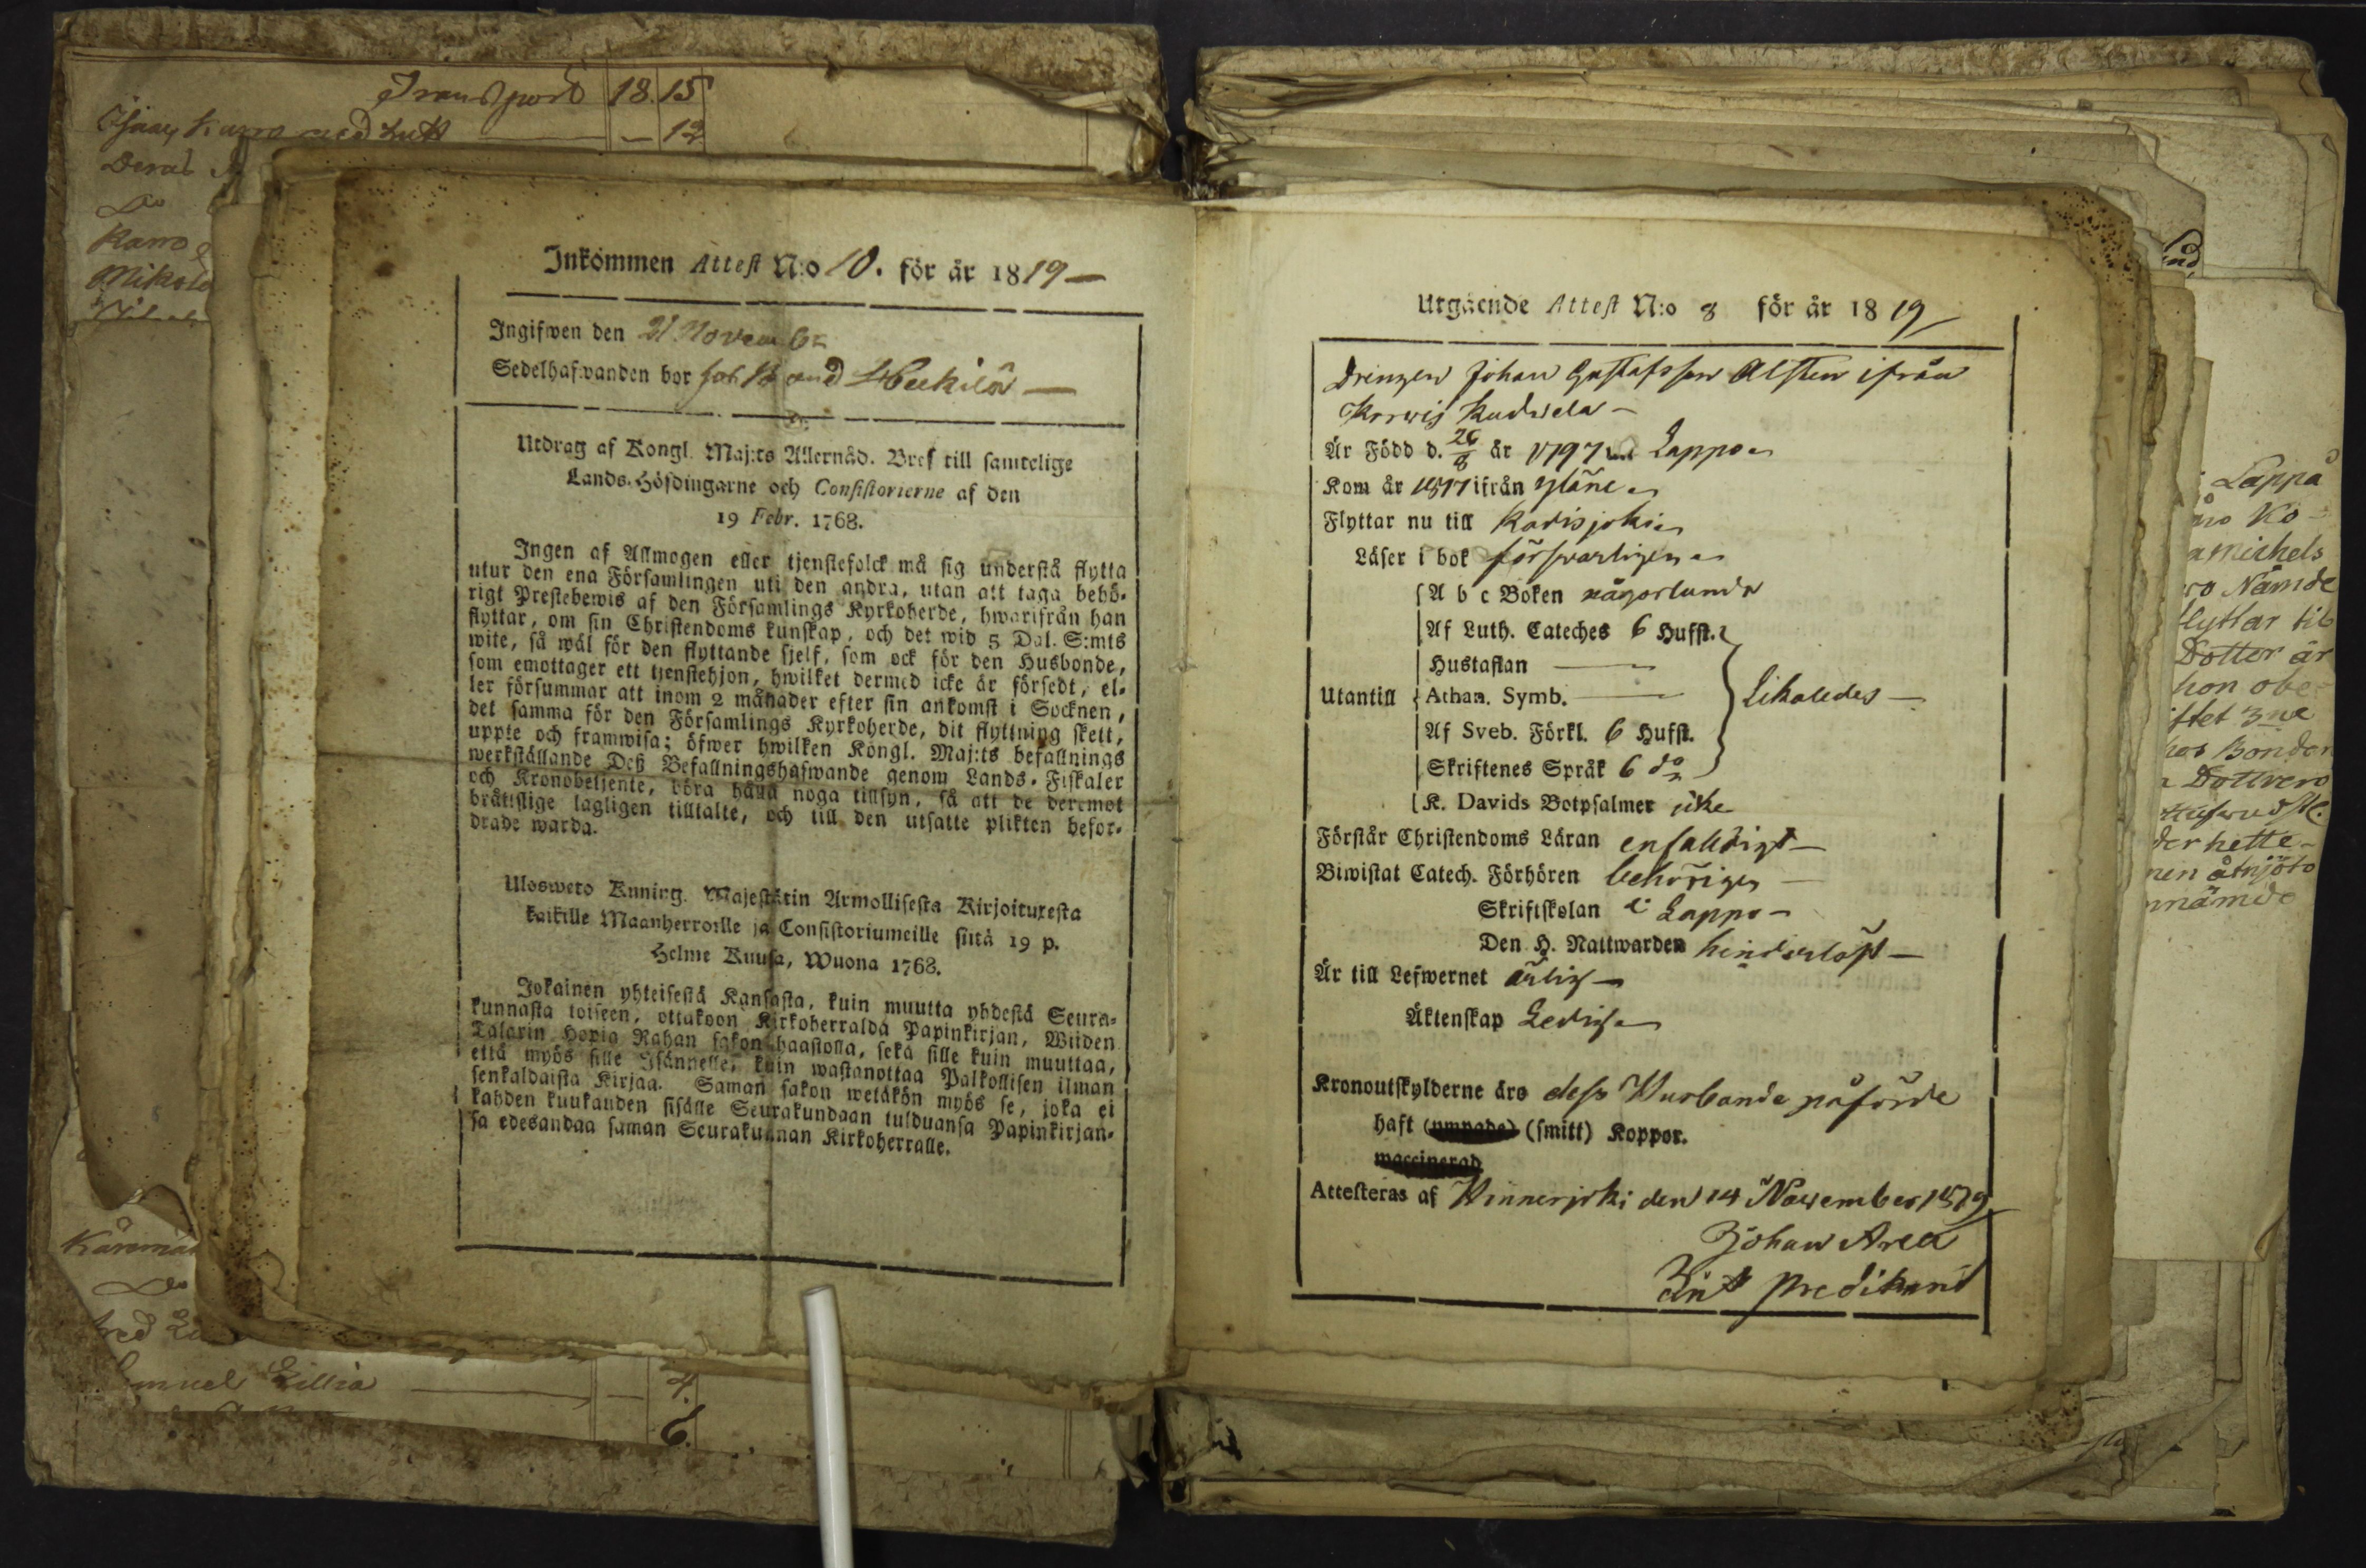 Transport 18. 15
med
— 12
Karro
Inkommen Attest N:o 10. för år 1819 —
Ingifwen den 21 November
Sedelhafwanden bor Heikilä —
Utdrag af Kongl. Maj:ts Allernåd. Bref till samtelige
Lands-Höfdingarne och Consistorierne af den
19 Febr. 1768.
Ingen af Allmogen eller tjenstefolck må sig understå flytta
utur den ena Församlingen uti den andra, utan att taga behö-
rigt Prestebewis af den Församlings Kyrkoherde, hwarifrån han
flyttar, om sin Christendoms kunskap, och det wid 5 Dal. S:mts
wite, så wäl för den flyttande sjelf, som ock för den Husbonde,
som emottager ett tjenstehjon, hwilket dermed icke är försedt, el-
ler försummar att inom 2 månader efter sin ankomst i Socknen,
det samma för den Församlings Kyrkoherde, dit flyttning skett,
uppte och framwisa; öfwer hwilken Kongl. Maj:ts befallnings
werkställande Deß Befallningshafwande genom Lands-Fiskaler
och Kronobetjente, böra hafwa noga tillsyn, så att de deremot
bråttslige lagligen tilltalte, och till den utsatte plikten befor-
drade warda.
Ulosweto Kuning. Majestätin Armollisesta Kirjoituxesta
kaikille Maanherroille ja Consistoriumeille siitä 19 p.
Helme Kuusa, Wuona 1768.
Jokainen yhteisestä Kansasta, kuin muutta yhdestä Seura-
kunnasta toiseen, ottakoon Kirkoherralda Papinkirjan, Wiiden
Talarin Hopia Rahan sakon haastolla, sekä sille kuin muuttaa,
että myös sille Isännelle, kuin wastanottaa Palkollisen ilman
senkaldaista Kirjaa. Saman sakon wetäkön myös se, joka ei
kahden kuukauden sisälle Seurakundaan tulduansa Papinkirjan-
sa edesandaa saman Seurakunnan Kirkoherralle.
Lillia — 4.
6.
Utgående Attest N:o 8 för år 1819
Drengen Johan Gustafsson Alsten ifrån
Är Född d. 26/8 år 1797 i Lappo
Kom år 1817 ifrån Yläne
Flyttar nu till Karisjoki
Läser i bok försvarligen
A b c Boken någorlunda
Af Luth. Cateches 6 Hufst.
Hustaflan —
Utantill Athan. Symb. — Likaledes —
Af Sveb. Förkl. 6 Hufst.
Skriftenes Språk 6 do
K. Davids Botpsalmer icke
Förstår Christendoms Läran enfaldigt —
Biwistat Catech. Förhören behörigen —
Skriftskolan i Lappo —
Den H. Nattwarden hinderlöst —
Är till Lefwernet ärlig —
Äktenskap Ledig
Kronoutskylderne äro dess Husbonde påförde
haft (ympade) (smitt) Koppor.
waccinerad
Attesteras af Hinnerjoki den 14 November 1819
Johan Area
Predikant
Lappå
Ko-
Nämde
flyttar til
Dotter är
hon
Bonden
hette
åtnjöto